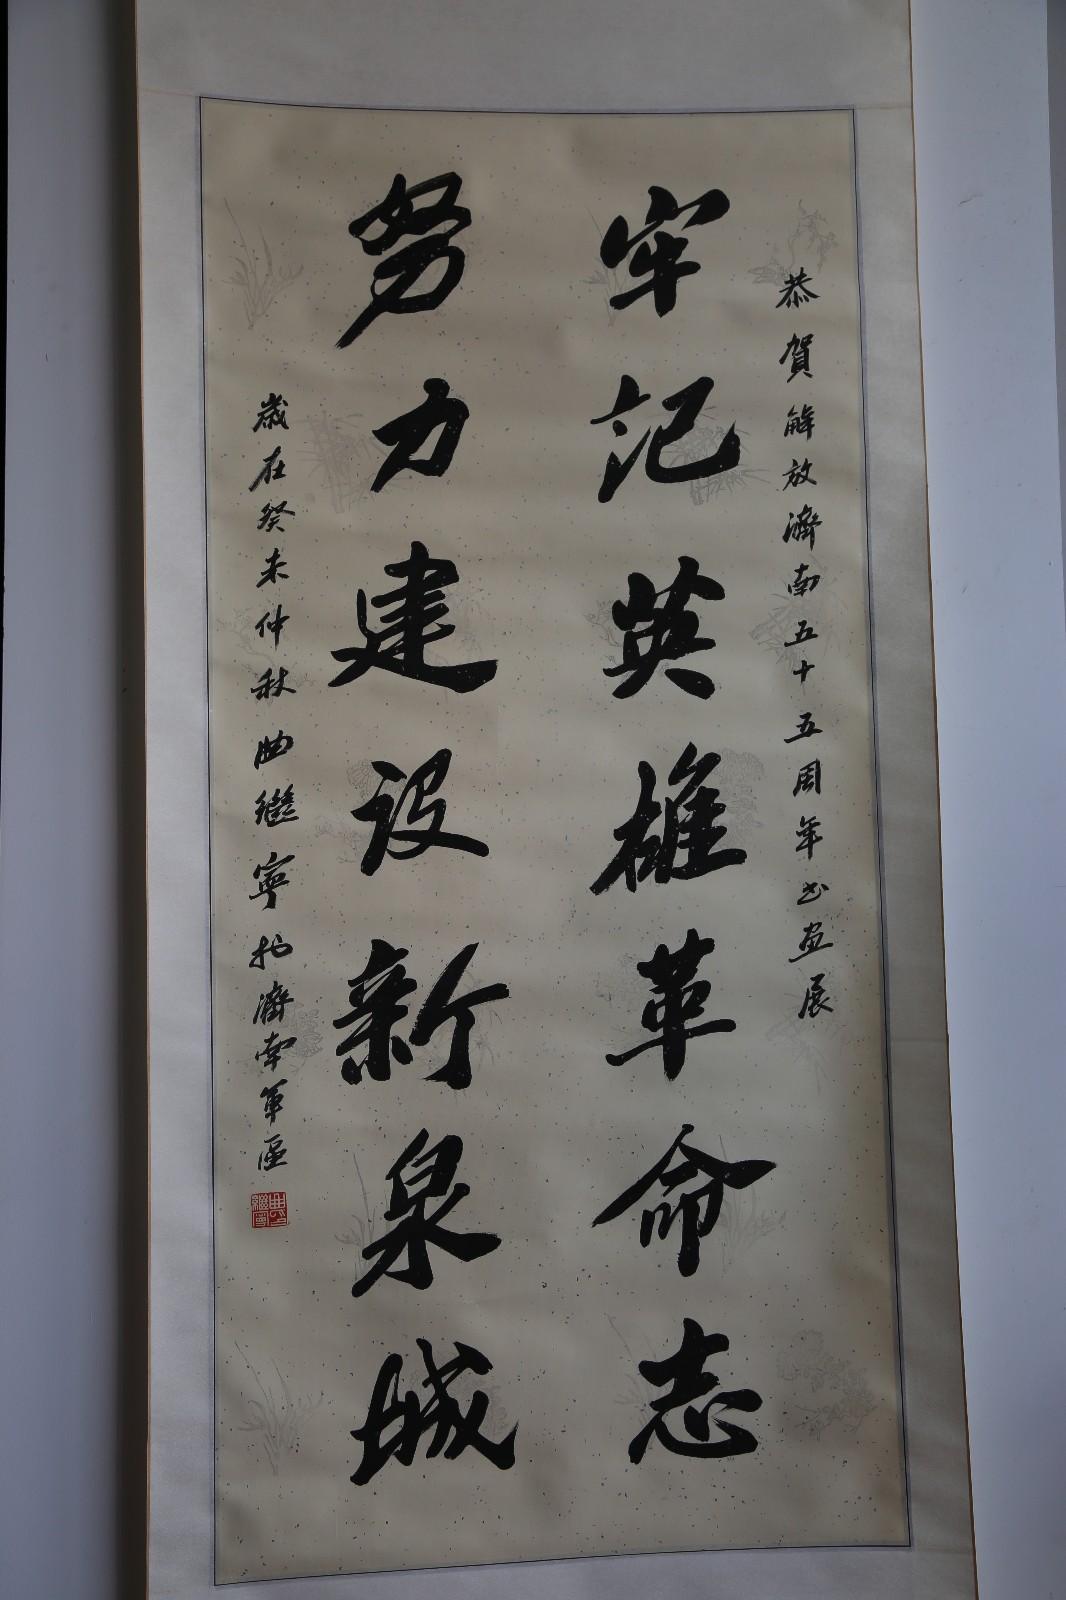 恭賀解放濟南五十五周年书画展
牢记英雄革命志
努力建设新泉城
歲在癸未仲秋曲繼寧於濟南軍區